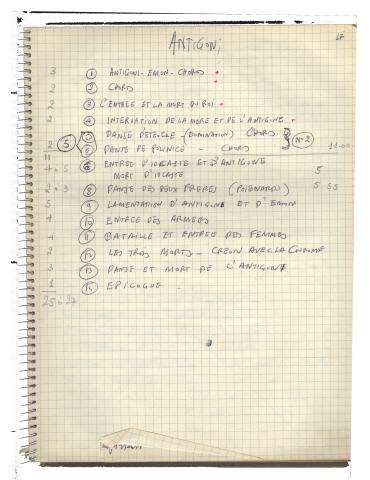 ANTIGONI
3 ① ANTIGONI - EMON - CHORS
2 ② CHORS
2 ③ L'ENTREE ET LA MORT DU ROI
2 ④ DE LA MORE ET DE L'ANTIGONE
2 ⑤ DANSE D'ETEOCLE - (DOMINATION) CHORS
⑥ DANSE DE POLINICE - CHORS N-2
11
4 = 5 ⑦ ENTREE D'IOCASTE ET D'ANTIGONE 5
MORT D'IOCASTE
2 = 3 ⑧ DANSE DES DEUX FRERES (POIGNARD) 5 55
5 ⑨ LAMENTATION D'ANTIGONE ET D'EMON
4 ⑩ ENTREE DES ARMEES
4 ⑪ BATAILLE ET ENTREE DES FEMMES
2 ⑫ LES TROIS MORTS - CREON AVEC LA COURONNE
3 ⑬ DANSE ET MORT DE L'ANTIGONE
1 ⑭ EPILOGUE.
25 à 27